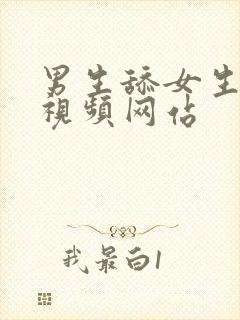 男生舔女生
視頻网佔
我最白1